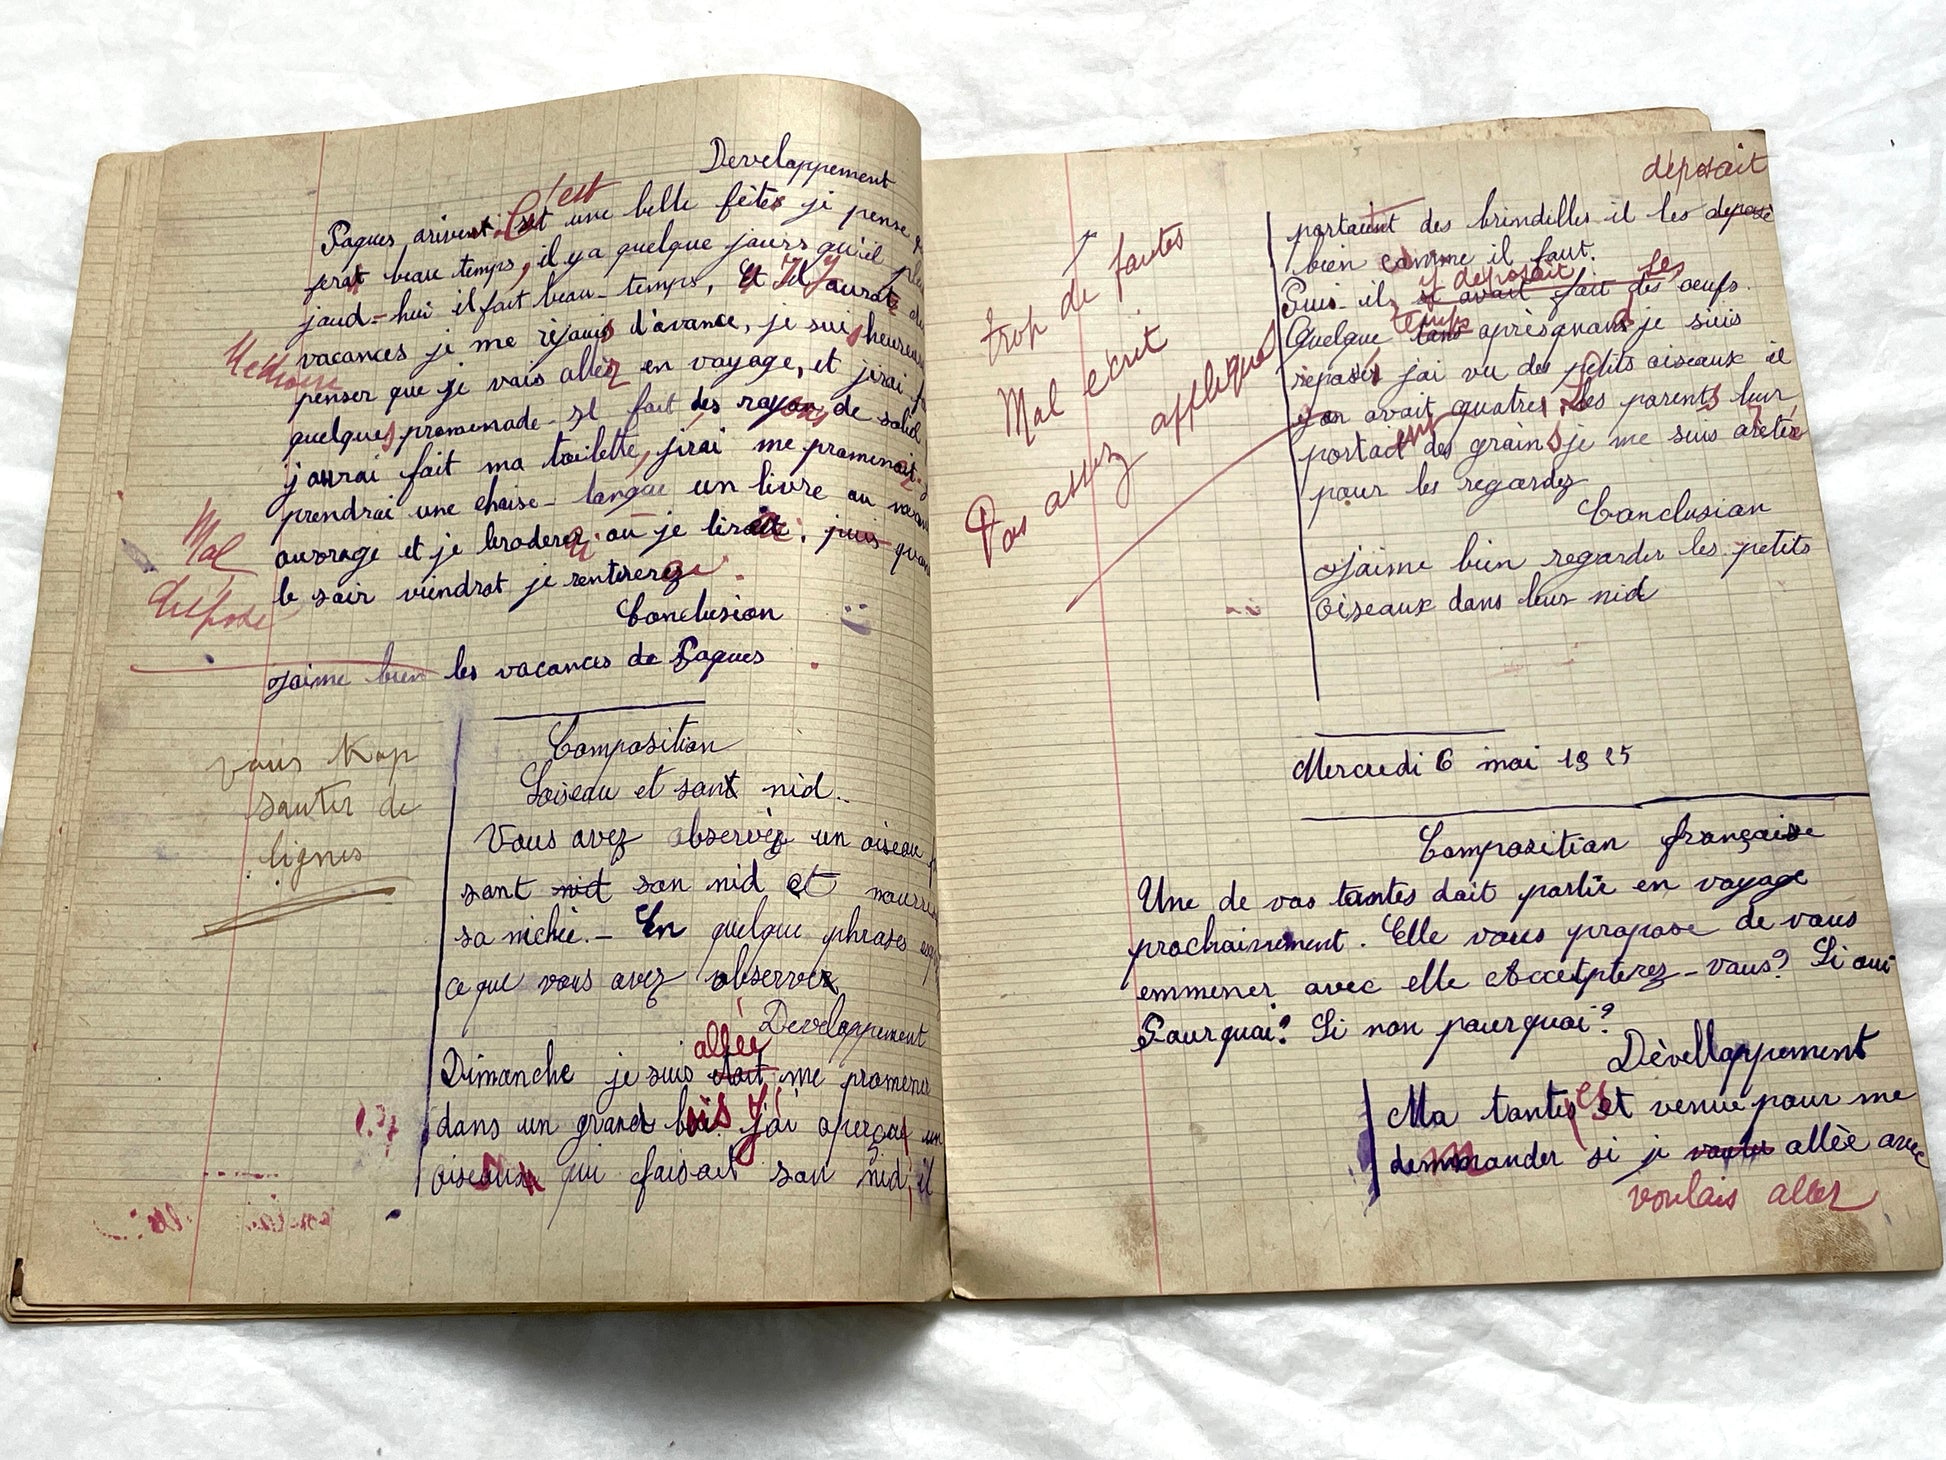 Developpement
Paques arivent. C'est une belle fêtes je pense
ferat beau temps, il y a quelque jours qu'il
jaud-hui il fait beau-temps, Et Il J'aurat
vacances je me réjouis d'avance, je suis heureuse
penser que je vais aller en voyage, et jirai
quelques promenade. Il fait des rayons de soleil
j'aurai fait ma toilette, jirai me promenait
prendrai une chaise-langue un livre ou
ouvrage et je broderez ou je lirait. puis quand
le soir viendrat je rentrerez.
Conclusion
J'aime bien les vacances de Paques
Mal
disposé
vous trop
sauter de
lignes
Composition
Loiseau et sont nid.
Vous avez observéz un oiseau
sant nid son nid et nourri
sa nichée. - En quelque phrases
ce que vous avez observez
Developpement
allée
Dimanche je suis était me promener
dans un grand bois J'ai aperçu un
oiseaux qui faisait son nid, il
déposait
portaient des brindilles il les deposé
bien comme il faut.
y déposait ses
Puis il, y avait fait des oeufs.
temps
Quelque tans après quand je suis
repasser j'ai vu des petits oiseaux il
y en avait quatres. Les parents leur
portaient des grains je me suis arêtér
pour les regardez
Conclusion
J'aime bien regarder les petits
oiseaux dans leur nid
trop de fautes
Mal écrit
Pas assez appliqué
Mercredi 6 mai 1925
Composition française
Une de vos tantes doit partir en voyage
prochainement. Elle vous propose de vous
emmener avec elle Accetpterez-vous? Si oui
Pourquoi? Si non pourquoi?
Dévelloppement
Ma tantes est venue pour me
demmander si je voulu allée avec
voulais aller